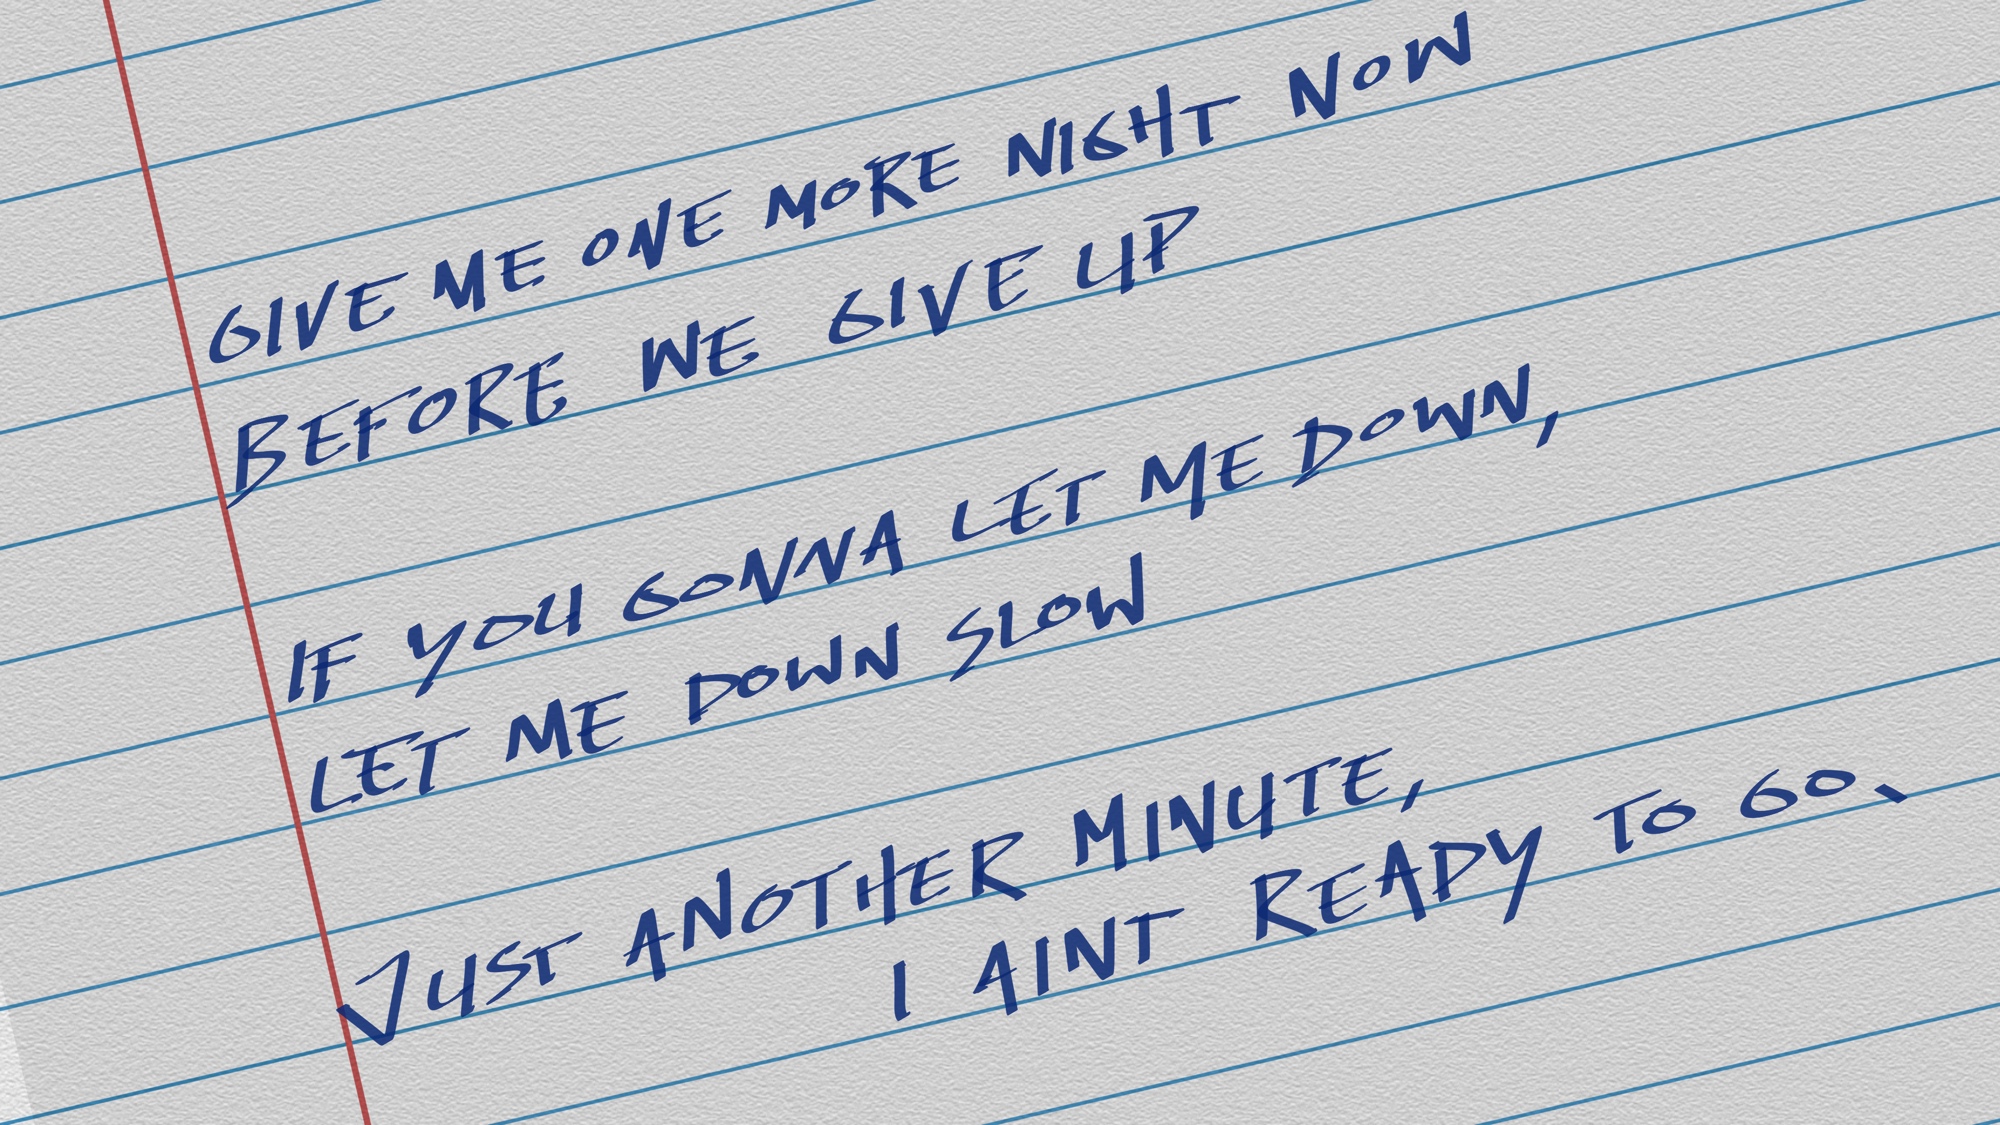 GIVE ME ONE MORE NIGHT NOW
BEFORE WE GIVE UP
IF YOU GONNA LET ME DOWN,
LET ME DOWN SLOW
JUST ANOTHER MINUTE,
I AINT READY TO GO.